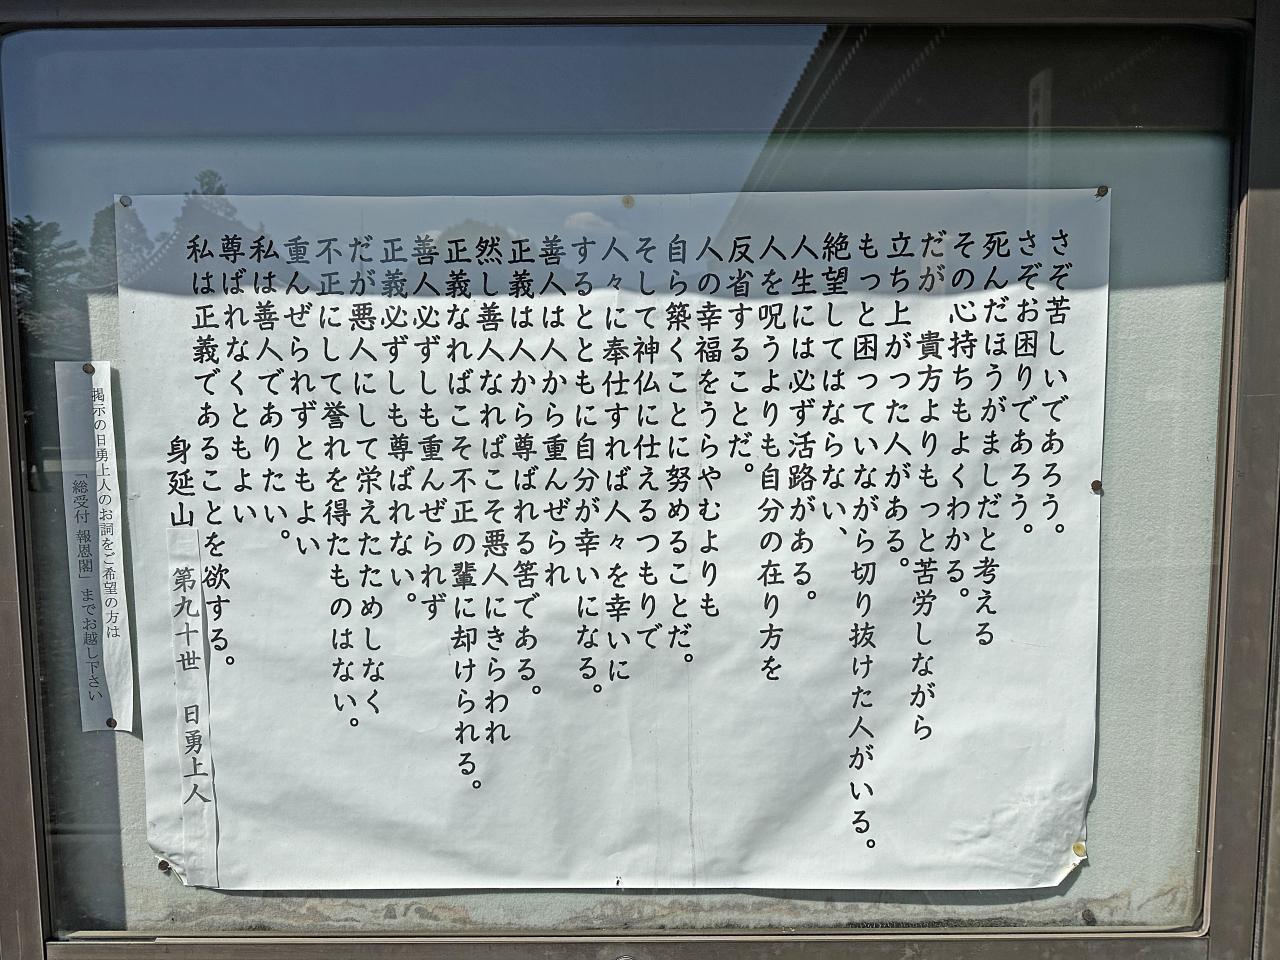 さぞ苦しいであろう。
さぞお困りであろう。
死んだほうがましだと考える
その心持ちもよくわかる。
だが 貴方よりもっと苦労しながら
立ち上がった人がある。
もっと困っていながら切り抜けた人がいる。
絶望してはならない、
人生には必ず活路がある。
人を呪うよりも自分の在り方を
反省することだ。
人の幸福をうらやむよりも
自ら築くことに努めることだ。
そして神仏に仕えるつもりで
人々に奉仕すれば人々を幸いに
するとともに自分が幸いになる。
善人は人から重んぜられ
正義は人から尊ばれる筈である。
然し善人なればこそ悪人にきらわれ
正義なればこそ不正の輩に却けられる。
善人必ずしも重んぜられず
正義必ずしも尊ばれない。
だが悪人にして栄えたためしなく
不正にして誉れを得たものはない。
重んぜられずともよい
私は善人でありたい。
尊ばれなくともよい
私は正義であることを欲する。
身延山 第九十世 日勇上人
掲示の日勇上人のお詞をご希望の方は
「総受付 報恩閣」までお越し下さい